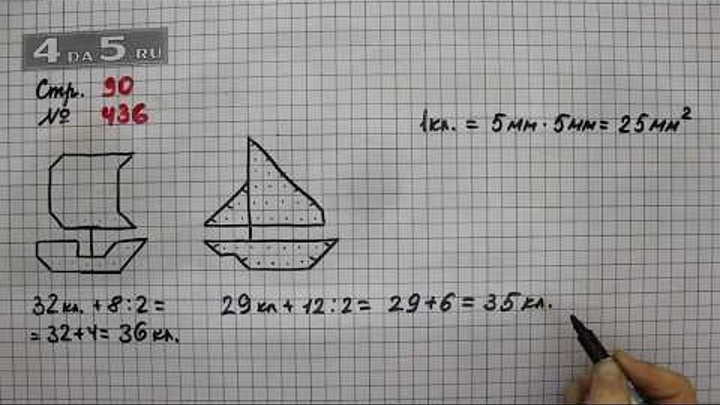 4 DA 5 RU
Стр. 90
№ 436
1кл. = 5мм · 5мм = 25мм²
32кл. + 8 : 2 =
= 32 + 4 = 36 кл.
29 кл + 12 : 2 = 29 + 6 = 35 кл.